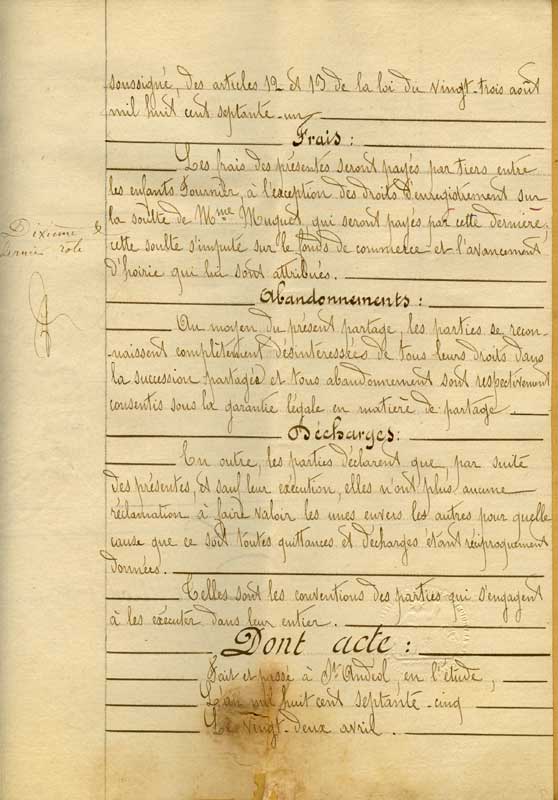 soussigné, des articles 12 et 13 de la loi du vingt-trois août
mil huit cent septante-un
Frais :
Les frais des présentes seront payés par tiers entre
les enfants Fournier, à l'exception des droits d'enregistrement sur
la soulte de Mme Muguet qui seront payés par cette dernière;
Dixième &
cette soulte s'impute sur le fonds de commerce et l'avancement
dernier rôle
d'hoirie qui lui sont attribués.
Abandonnements :
Au moyen du présent partage, les parties se recon-
naissent complètement désintéressées de tous leurs droits dans
la succession partagée et tous abandonnement sont respectivement
consentis sous la garantie légale en matière de partage
Décharges:
En outre, les parties déclarent que, par suite
des présentes, et sauf leur exécution, elles n'ont plus aucune
réclamation à faire valoir les unes envers les autres pour quelle
cause que ce soit toutes quittances et décharges étant réciproquement
données.
Telles sont les conventions des parties qui s'engagent
à les exécuter dans leur entier.
Dont acte :
Fait et passé à St Andéol, en l'étude,
L'an mil huit cent septante-cinq
Le vingt-deux avril.